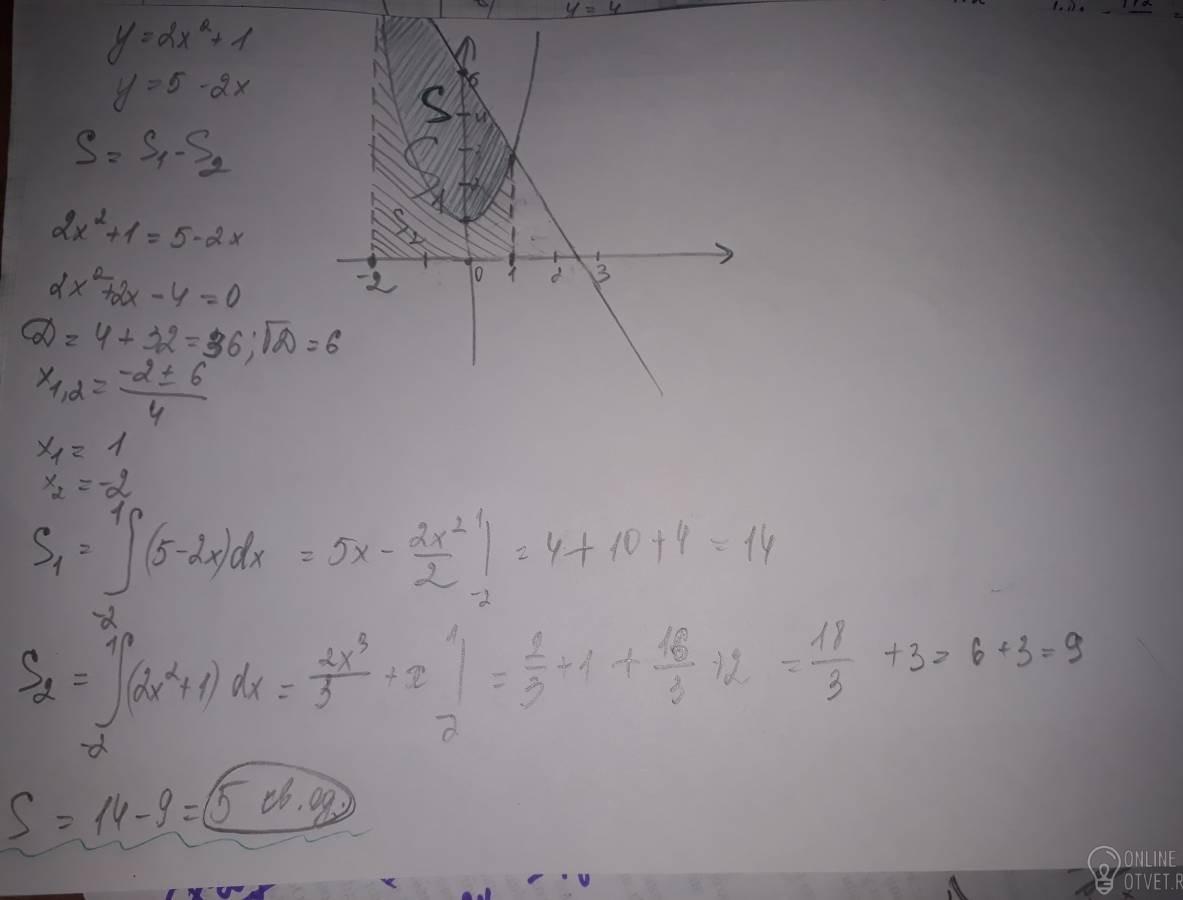 y = 4
y = 2x² + 1
y = 5 - 2x
S = S₁ - S₂
2x² + 1 = 5 - 2x
2x² + 2x - 4 = 0
D = 4 + 32 = 36; √D = 6
x₁,₂ = (-2 ± 6)/4
x₁ = 1
x₂ = -2
S
S₂
-2 0 1 2 3
S₁ = ∫₋₂¹ (5 - 2x) dx = 5x - 2x²/2 |₋₂¹ = 4 + 10 + 4 = 14
S₂ = ∫₋₂¹ (2x² + 1) dx = 2x³/3 + x |₋₂¹ = 2/3 + 1 + 16/3 + 2 = 18/3 + 3 = 6 + 3 = 9
S = 14 - 9 = 5 кв. ед.
ONLINE
OTVET.R